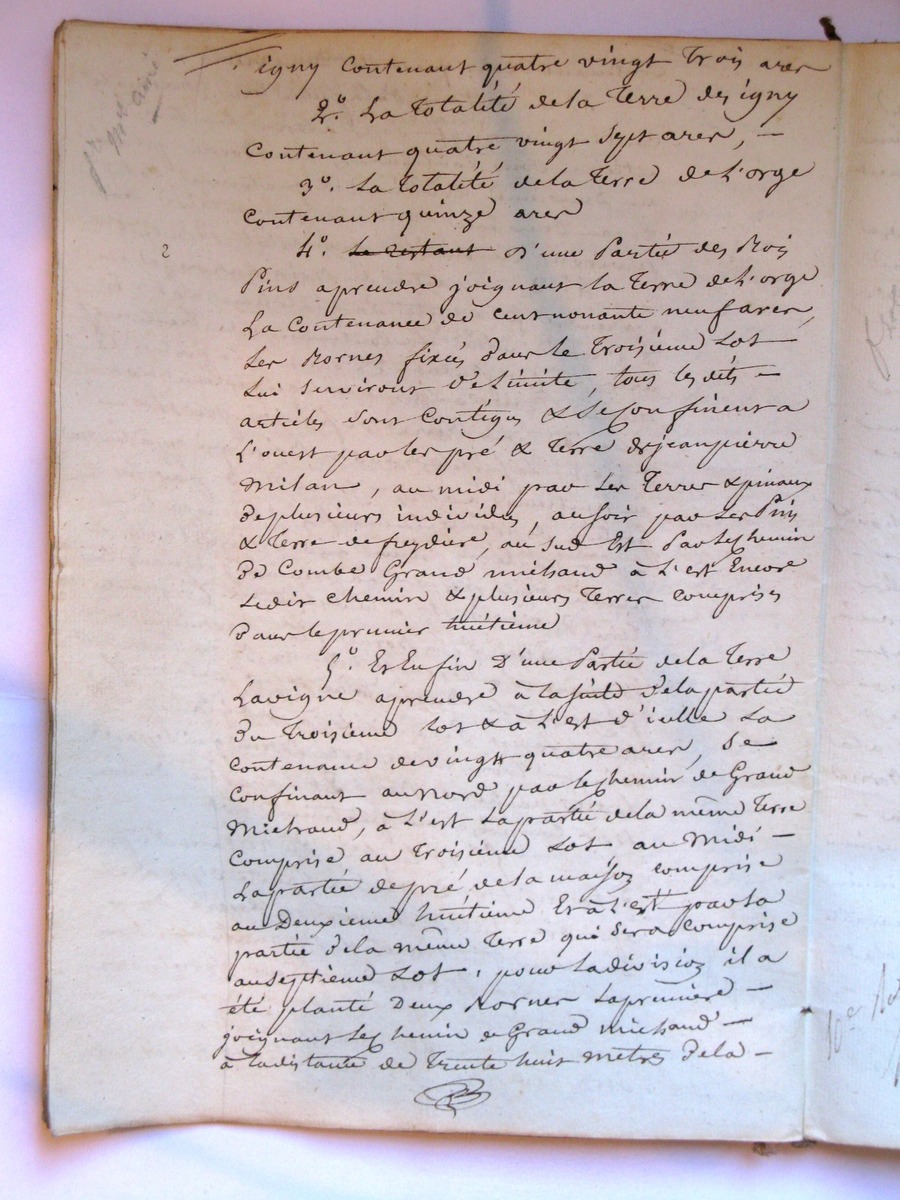 igny Contenant quatre vingt Trois ares
2°. La Totalité de la Terre des igny
Contenant quatre vingt Sept ares, —
3°. La Totalité de la Terre de L'orge
Contenant quinze ares
2
4°. Le restant D'une Partie des Bois
Pins aprendre joignant la Terre de L'orge
La Contenance de Cent nonante neuf ares,
Les Bornes fixées dans le Troisieme Lot
Lui Serviront De Limite, tous les dits —
articles Sont Contigus & Se Confinent a
L'ouest par les pré & Terre de jean pierre
Milan, au midi par Les Terres & pinaux
de plusieurs individus, au Soir par Les Pins
& Terre de freydiere, au Sud Est Par Le Chemin
De Combe Grand michaud à L'est Encore
Ledit Chemin & plusieurs Terres comprises
Dans le premier huitième
5°. Et Enfin D'une Partie de la Terre
Lavigne aprendre à la Suite De la partie
Du Troisieme Lot & à L'est d'icelle La
Contenance de vingt quatre ares, Se
Confinant au Nord par le Chemin de Grand
Michaud, à L'est La partie de la même Terre
Comprise au Troisieme Lot au Midi —
La partie de pré de la maison comprise
au Deuxieme huitième Et à L'est par la
partie De la même Terre qui Sera Comprise
au Septieme Lot, pour La division il a
été planté Deux Bornes La premiere —
joignant Le Chemin de Grand michaud —
à La distante de Trente huit Metres De la —